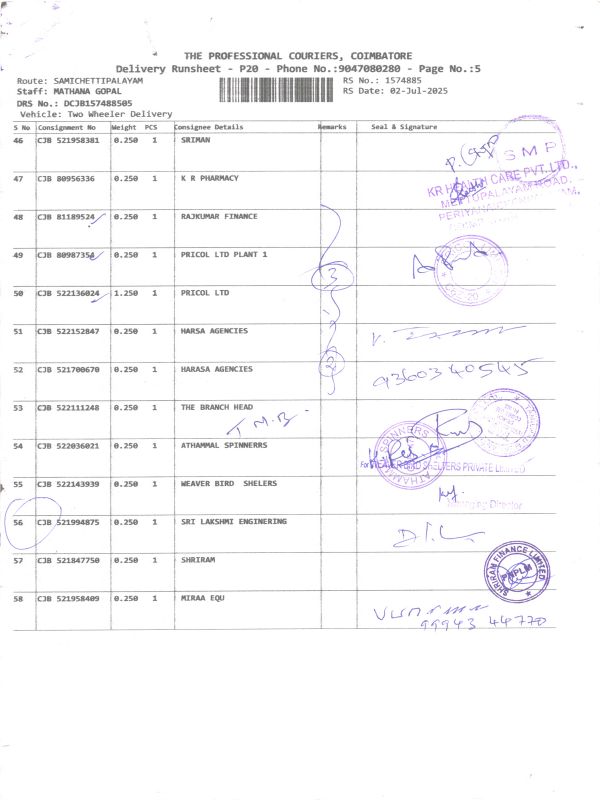 THE PROFESSIONAL COURIERS, COIMBATORE
Delivery Runsheet - P20 - Phone No.:9047080280 - Page No.:5
Route: SAMICHETTIPALAYAM RS No.: 1574885
Staff: MATHANA GOPAL RS Date: 02-Jul-2025
DRS No.: DCJB157488505
Vehicle: Two Wheeler Delivery
S No Consignment No Weight PCS Consignee Details Remarks Seal & Signature
46 CJB 521958381 0.250 1 SRIMAN
SMP
47 CJB 80956336 0.250 1 K R PHARMACY
KR HEALTH CARE PVT. LTD.,
METTUPALAYAM ROAD,
48 CJB 81189524 0.250 1 RAJKUMAR FINANCE
49 CJB 80987354 0.250 1 PRICOL LTD PLANT 1
3
50 CJB 522136024 1.250 1 PRICOL LTD
51 CJB 522152847 0.250 1 HARSA AGENCIES
52 CJB 521700670 0.250 1 HARASA AGENCIES 2 9360340545
53 CJB 522111248 0.250 1 THE BRANCH HEAD
T M.B
54 CJB 522036021 0.250 1 ATHAMMAL SPINNERRS
ATHAMMAL SPINNERS
For WEAVER BIRD SHELTERS PRIVATE LIMITED
55 CJB 522143939 0.250 1 WEAVER BIRD SHELERS
Managing Director
56 CJB 521994875 0.250 1 SRI LAKSHMI ENGINERING
57 CJB 521847750 0.250 1 SHRIRAM
SHRIRAM FINANCE LIMITED
58 CJB 521958409 0.250 1 MIRAA EQU
99943 44770